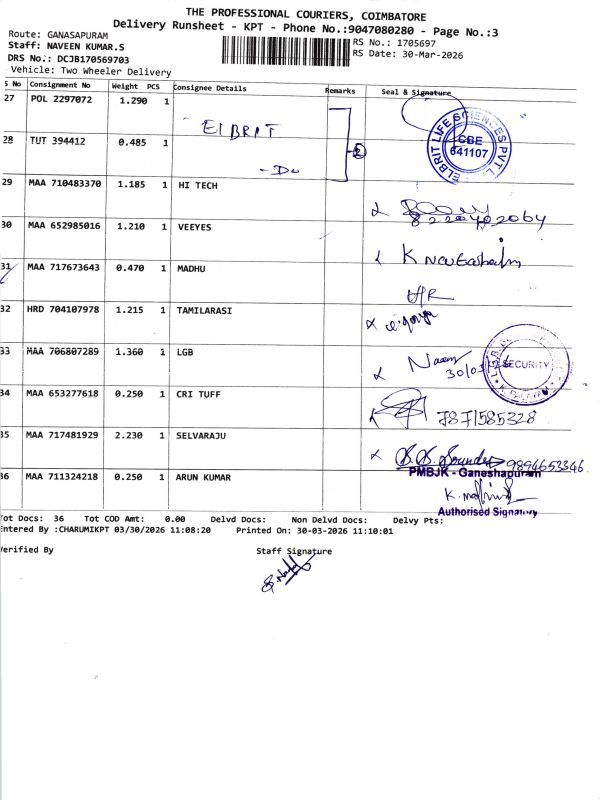 THE PROFESSIONAL COURIERS, COIMBATORE
Delivery Runsheet - KPT - Phone No.:9047080280 - Page No.:3
Route: GANASAPURAM
Staff: NAVEEN KUMAR.S
DRS No.: DCJB170569703
Vehicle: Two Wheeler Delivery
RS No.: 1705697
RS Date: 30-Mar-2026
S No Consignment No Weight PCS Consignee Details Remarks Seal & Signature
27 POL 2297072 1.290 1 ELBRIT
28 TUT 394412 0.485 1 - Do
2
ELBRIT LIFE SCIENCES PVT L
CBE
641107
29 MAA 710483370 1.185 1 HI TECH
8220402064
30 MAA 652985016 1.210 1 VEEYES
31 MAA 717673643 0.470 1 MADHU
32 HRD 704107978 1.215 1 TAMILARASI
33 MAA 706807289 1.360 1 LGB
SECURITY
34 MAA 653277618 0.250 1 CRI TUFF
787/585328
35 MAA 717481929 2.230 1 SELVARAJU
9894653346
PMBJK - Ganeshapuram
36 MAA 711324218 0.250 1 ARUN KUMAR
Authorised Signatory
Tot Docs: 36 Tot COD Amt: 0.00 Delvd Docs: Non Delvd Docs: Delvy Pts:
Entered By :CHARUMIKPT 03/30/2026 11:08:20 Printed On: 30-03-2026 11:10:01
Verified By Staff Signature